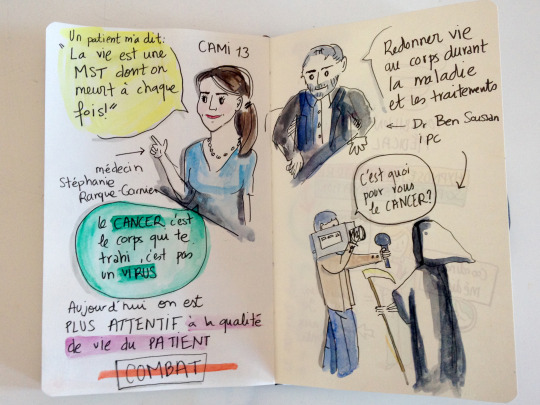 "Un patient m'a dit:
La vie est une
MST dont on
meurt à chaque
fois!"
CAMI 13
médecin
Stéphanie
Ranque-Garnier
le CANCER c'est
le corps qui te
trahi, c'est pas
un VIRUS
Aujourd'hui on est
PLUS ATTENTIF à la qualité
de vie du PATIENT
COMBAT
Redonner vie
au corps durant
la maladie
et les traitements
Dr. Ben Soussan
IPC
C'est quoi
pour vous
le CANCER?